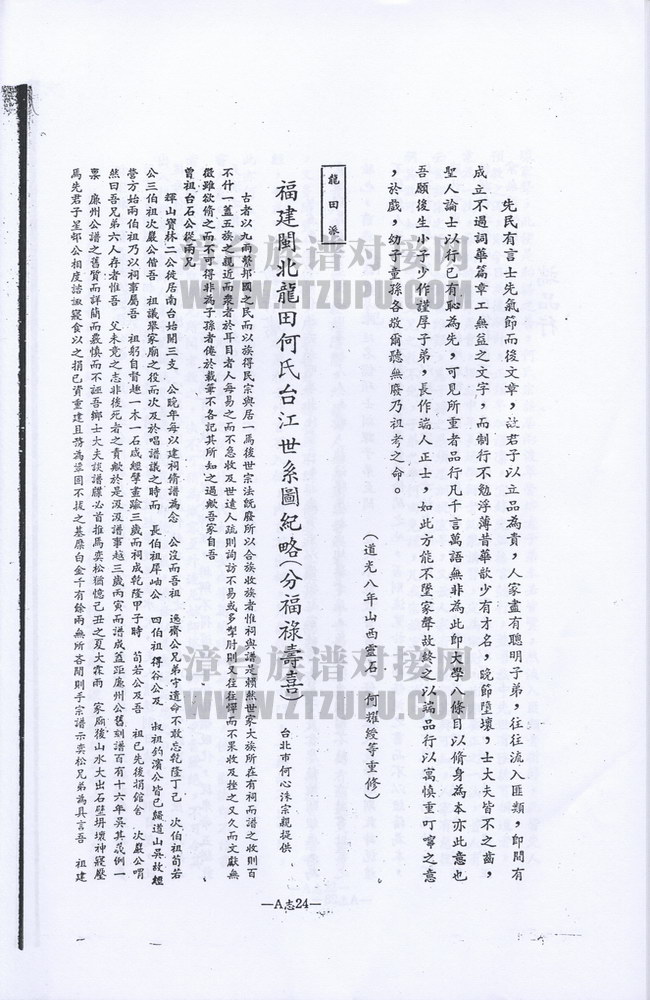 先民有言士先氣節而後文章，故君子以立品為貴，人家盡有聰明子弟，往往流入匪類，即間有
成立不過詞華篇章工無益之文字，而制行不勉浮薄昔華歆少有才名，晚節墮壞，士大夫皆不之齒，
聖人論士以行已有恥為先，可見所重者品行凡千言萬語無非為此即大學八條目以脩身為本亦此意也
吾願後生小子少作謹厚子弟，長作端人正士，如此方能不墜家聲故終之以端品行以寓慎重叮嚀之意
，於戲，幼子童孫各敬爾聽無廢乃祖考之命。
（道光八年山西靈石　何耀綬等重修）
龍田派
福建閩北龍田何氏台江世系圖紀略（分福祿壽喜）
台北市何心洙宗親提供
古者以九兩繫邦國之民而以族得民宗與居一焉後世宗法既廢所以合族收族者惟祠與譜是賴然世家大族所在有祠而譜之收則百
不什一蓋五族之親近而衆者於耳目者人每易之而不急收及世遠人疏則詢訪不易或多掣肘則又往往憚而不果收及挫之又久而文獻無
徵雖欲脩之而不可得非為子孫者倦於載筆不各記其所知之過歟吾家自吾
曾祖台石公從兩兄
輝山寶林二公徙居南台始開三支　公晚年每以建祠脩譜為念　公沒而吾祖　逸齋公兄弟守遺命不敢忘乾隆丁己　次伯祖荀若
公三伯祖次嚴公偕吾　祖議舉家廟之役而次及於唱譜議之時而　長伯祖岸岫公　四伯祖得谷公及　叔祖鈞濱公皆已歸道山吳故經
營方始兩伯祖乃以祠事屬吾　祖躬自督趣一木一石咸經擘畫踰三歲而祠成乾隆甲子時　荀若公及吾　祖已先後捐館舍　次嚴公喟
然曰吾兄弟六人存者惟吾　父未竟之志非後死者之責歟於是汲汲譜事越三歲丙寅而譜成蓋距廉州公舊刻譜百有十六年吳其晟例一
稟　廉州公譜之舊質而詳簡而嚴慎而不誣吾鄉士大夫談譜牒必首推焉奕松猶憶己丑之夏大雨　家廟後山水大出石壁坍壞神寢壓
焉先君子星郵公相度諮諏寢食以之捐已資重建且務為鞏固不拔之基靡白金千有餘兩無所吝閒則手宗譜示奕松兄弟為具言吾　祖建
—A志24—
漳台族谱对接网
WWW.ZTZUPU.COM
漳台族谱对接网
WWW.ZTZUPU.COM